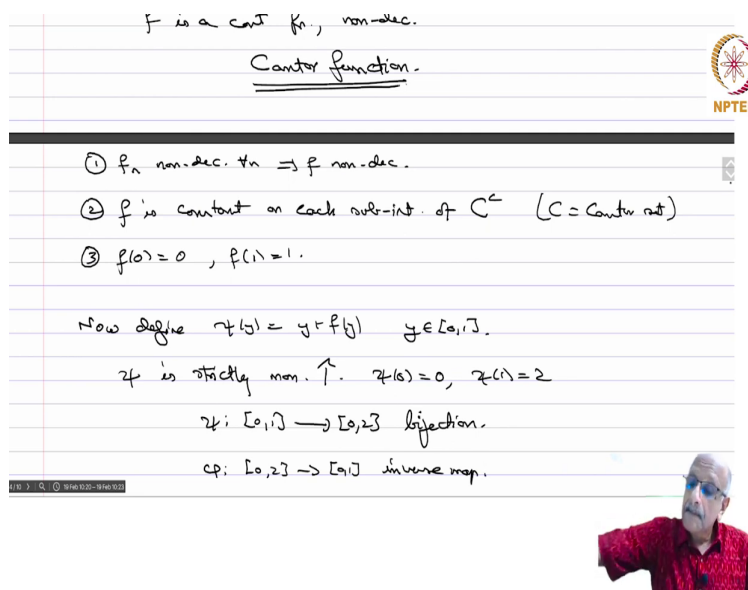 f is a cont fn., non-dec.
Cantor function.
NPTE
① fn non-dec. ∀n ⇒ f non-dec.
② f is constant on each sub-int. of C^c (C = Cantor set)
③ f(0) = 0 , f(1) = 1.
Now define ψ(y) = y + f(y) y ∈ [0,1].
ψ is strictly mon. ↑. ψ(0) = 0, ψ(1) = 2
ψ: [0,1] → [0,2] bijection.
φ: [0,2] → [0,1] inverse map.
4/10 19 Feb 10:20 - 19 Feb 10:23